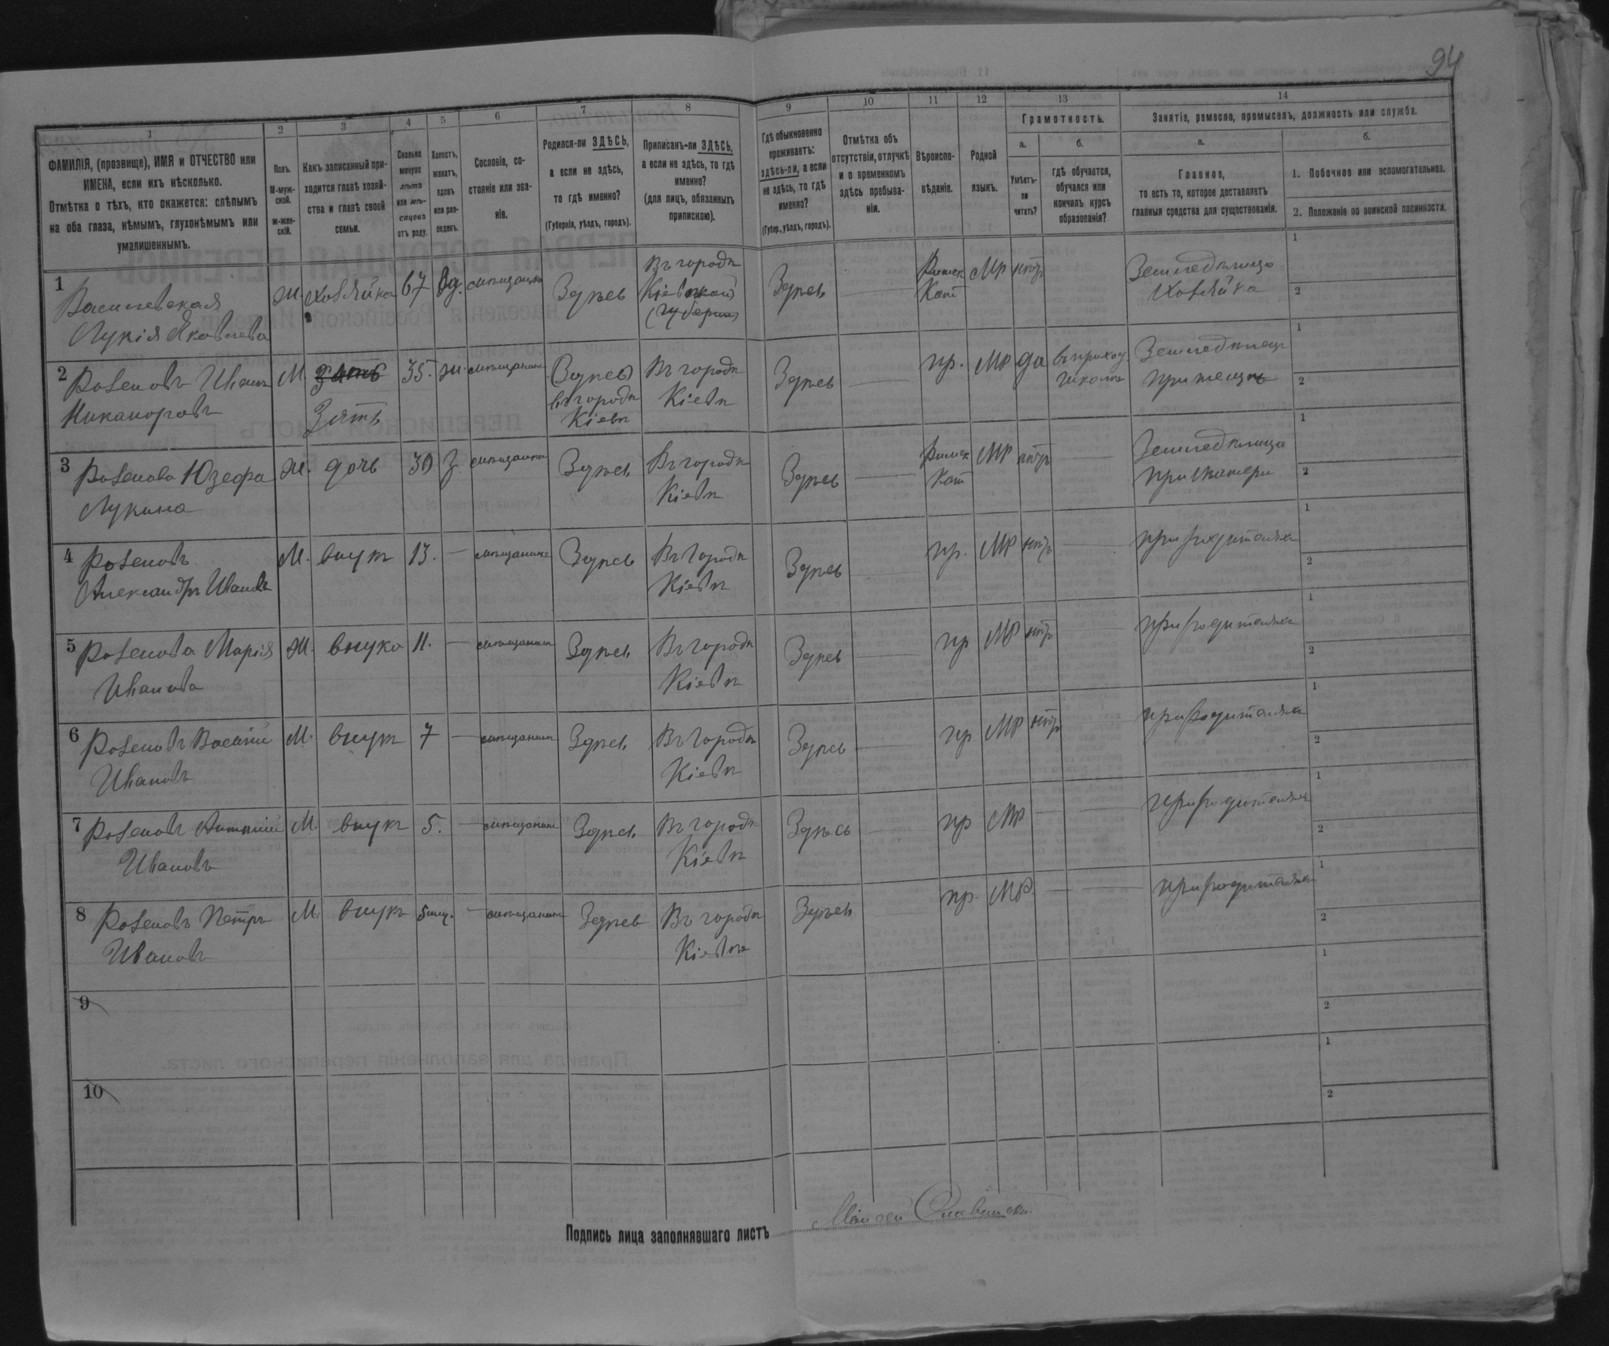 94
1 2 3 4 5 6 7 8 9 10 11 12 13 14
ФАМИЛІЯ, (прозвище), ИМЯ и ОТЧЕСТВО или ИМЕНА, если ихъ нѣсколько.
Отмѣтка о тѣхъ, кто окажется: слѣпымъ на оба глаза, нѣмымъ, глухонѣмымъ или умалишеннымъ.
Полъ.
М-мужской.
ж-женскій.
Какъ записанный приходится главѣ хозяйства и главѣ своей семьи.
Сколько минуло лѣтъ или мѣсяцевъ отъ роду.
Холостъ, женатъ, вдовъ или разведенъ.
Сословіе, состояніе или званіе.
Родился-ли ЗДѢСЬ, а если не здѣсь, то гдѣ именно?
(Губернія, уѣздъ, городъ).
Приписанъ-ли ЗДѢСЬ, а если не здѣсь, то гдѣ именно?
(для лицъ, обязанныхъ припискою).
Гдѣ обыкновенно проживаетъ: здѣсь-ли, а если не здѣсь, то гдѣ именно?
(Губер., уѣздъ, городъ).
Отмѣтка объ отсутствіи, отлучкѣ и о временномъ здѣсь пребываніи.
Вѣроисповѣданіе.
Родной языкъ.
Грамотность.
а.
Умѣетъ-ли читать?
б.
гдѣ обучается, обучался или кончилъ курсъ образованія?
Занятіе, ремесло, промыселъ, должность или служба.
а.
Главное,
то есть то, которое доставляетъ главныя средства для существованія.
б.
1. Побочное или вспомогательное.
2. Положеніе по воинской повинности.
1 Василевская Лукія Яковлева ж. хозяйка 67 вд. мѣщанка Здѣсь Въ городѣ Кіевѣ (губерніи) Здѣсь Римск Кат МР нѣтъ Земледѣлица Хозяйка 1 2
2 Розеновъ Иванъ Никаноровъ М. зять Зять 35. ж. мѣщанинъ Здѣсь въ городѣ Кіевѣ Въ городѣ Кіевѣ Здѣсь — пр. МР да въ приход. школѣ Земледѣлецъ при тещѣ 1 2
3 Розенова Юзефа Лукина ж. дочь 30 з мѣщанка Здѣсь Въ городѣ Кіевѣ Здѣсь — Римск Кат МР нѣтъ — Земледѣлица при матери 1 2
4 Розеновъ Александръ Ивановъ М. внукъ 13. — мѣщанинъ Здѣсь Въ городѣ Кіевѣ Здѣсь — пр. МР нѣтъ — при родителяхъ 1 2
5 Розенова Марія Иванова ж. внука 11. — мѣщанка Здѣсь Въ городѣ Кіевѣ Здѣсь — пр МР нѣтъ при родителяхъ 1 2
6 Розеновъ Василій Ивановъ М. внукъ 7 — мѣщанинъ Здѣсь Въ городѣ Кіевѣ Здѣсь — пр МР нѣтъ при родителяхъ 1 2
7 Розеновъ Антоній Ивановъ М. внукъ 5. — мѣщанинъ Здѣсь Въ городѣ Кіевѣ Здѣсь — пр МР — — при родителяхъ 1 2
8 Розеновъ Петръ Ивановъ М внукъ 5мѣц. — мѣщанинъ Здѣсь Въ городѣ Кіевѣ Здѣсь пр. МР — — при родителяхъ 1 2
9 1 2
10 1 2
Подпись лица заполнявшаго листъ